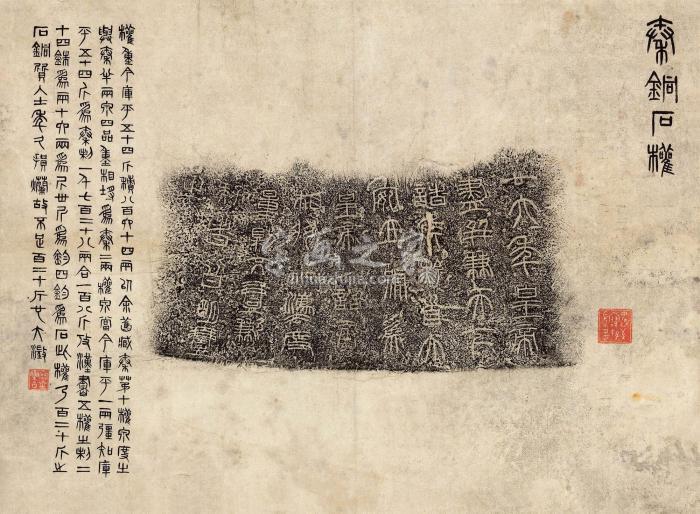 秦銅石權
廿六年皇帝
盡并兼天下
諸侯黔首大
安立號為
皇帝乃詔
相狀 法度
量則不壹歉
疑者皆明壹
之
權重今庫平五十四斤積八百六十四兩以余舊臧秦第十權 度之
與秦半兩泉四品重相埒為秦一兩權 當今庫平一兩彊知庫
平五十四斤為秦制一千七百二十八兩合一百八斤攷漢書五權之制二
十四銖為兩十六兩為斤卅斤為鈞四鈞為石此權乃百二十斤之
石銅質入土年久損爛故不足百二十斤也 大澂
字画之家